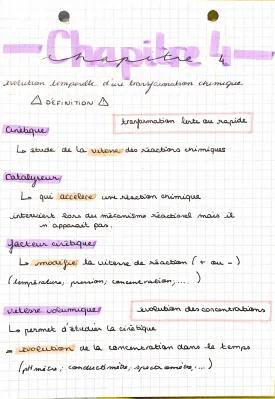 Chapitre 4
chapitre 4
evolution temporelle d'une transformation chimique
⚠ DÉFINITION ⚠
transformation lente ou rapide
Cinétique
↳ etude de la vitesse des réactions chimiques
Catalyseur
↳ qui accelère une réaction chimique
intervient lors du mécanisme réactionnel mais il
n apparait pas.
facteur cinétique
↳ modifie la vitesse de réaction (+ ou -)
(température, pression, concentration, ....)
vitesse volumique
evolution des concentrations
↳ permet d'étudier la cinétique
= evolution de la concentration dans le temps
(pH mètre, conductimètre, spectromètre, ...)